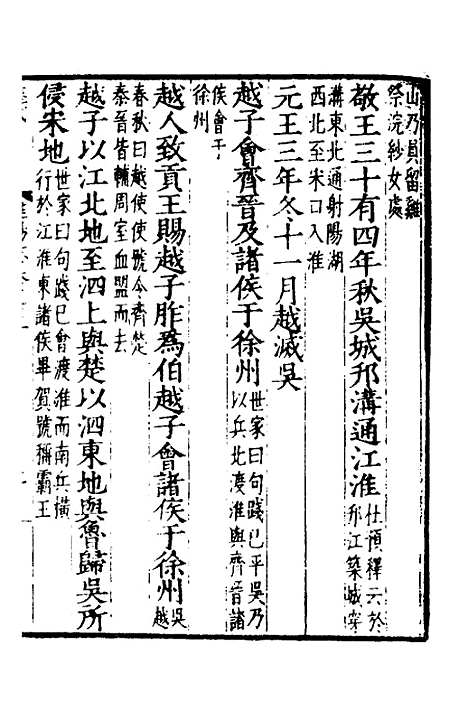 山乃員留雞
祭浣紗女處
敬王三十有四年秋吳城邗溝通江淮杜預釋云於
邗江築城穿
溝東北通射陽湖
西北至宋口入淮
元王三年冬十一月越滅吳
越子會齊晉及諸侯于徐州世家曰句踐已平吳乃
以兵北渡淮與齊晉諸
侯會于
徐州
越人致貢王賜越子胙爲伯越子會諸侯于徐州吳
越
春秋曰越使使號令齊楚
秦晉皆輔周室血盟而去
越子以江北地至泗上與楚以泗東地與魯歸吳所
侵宋地世家曰句踐已會渡淮而南兵橫
行於江淮東諸侯畢賀號稱霸王